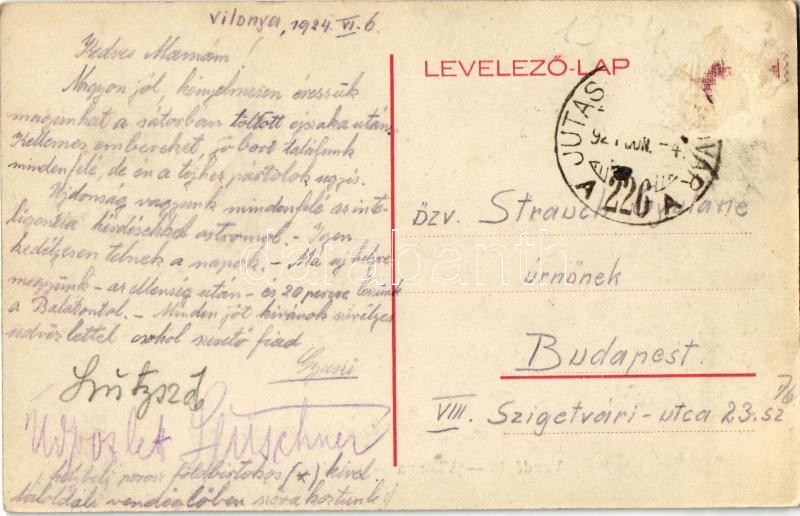 Vilonya, 1924. VI. 6
Kedves Mamám!
Nagyon jól, kényelmesen érezzük
magunkat a sátorban töltött éjszaka után.
Kellemes embereket, jó bort találunk
mindenfelé, de én a tejhez pártolok úgyis.
Ujdonság vagyunk mindenfelé az inte-
ligencia kérdésekkel ostromol. - Igen
kedélyesen telnek a napok. - Ma új helyre
megyünk - az ellenség után - és 20 percre leszünk
a Balatontol. - Minden jót kivánok szivélyes
üdvözlettel csokol szerető fiad
Gyuszi
Üdvözlet
helybeli porosz földbirtokos (*) kivel
túloldali vendéglőben szórakoztunk :/
LEVELEZŐ-LAP
JUTAS
VÁR
924 JUN. -4.
A 226 A
ÖZV.
úrnőnek
Budapest.
VIII. Szigetvári-utca 23. sz
7/6
darabanth